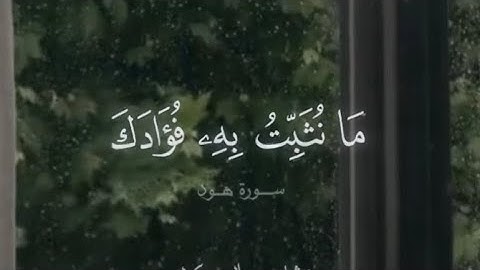 مَا نُثَبِّتُ بِهِۦ فُؤَادَكَ
سورة هود